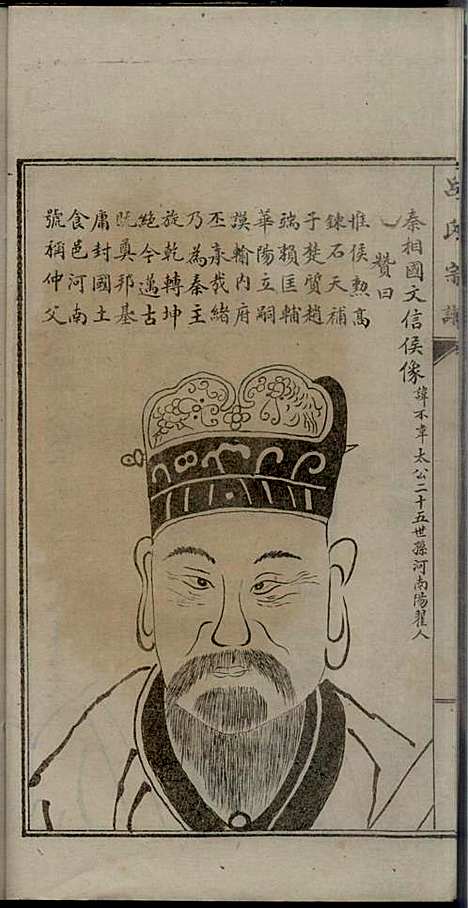 呂氏宗譜
秦相國文信侯像 諱不韋太公二十五世孫河南陽翟人
贊曰
惟侯勲高
鍊石天補
子楚質趙
端賴匡輔
華陽立嗣
謨輸内府
丕承我緒
乃為秦主
旋乾轉坤
絶今邁古
既奠邦基
庸封國土
食邑河南
號稱仲父